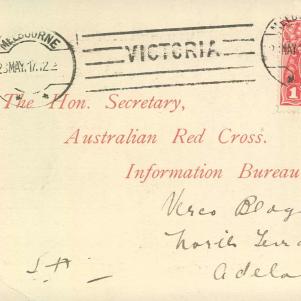 MELBOURNE
23 MAY. 17.12
VICTORIA
1
The Hon. Secretary,
Australian Red Cross.
Information Bureau
Verco
North
Adela
S.A.